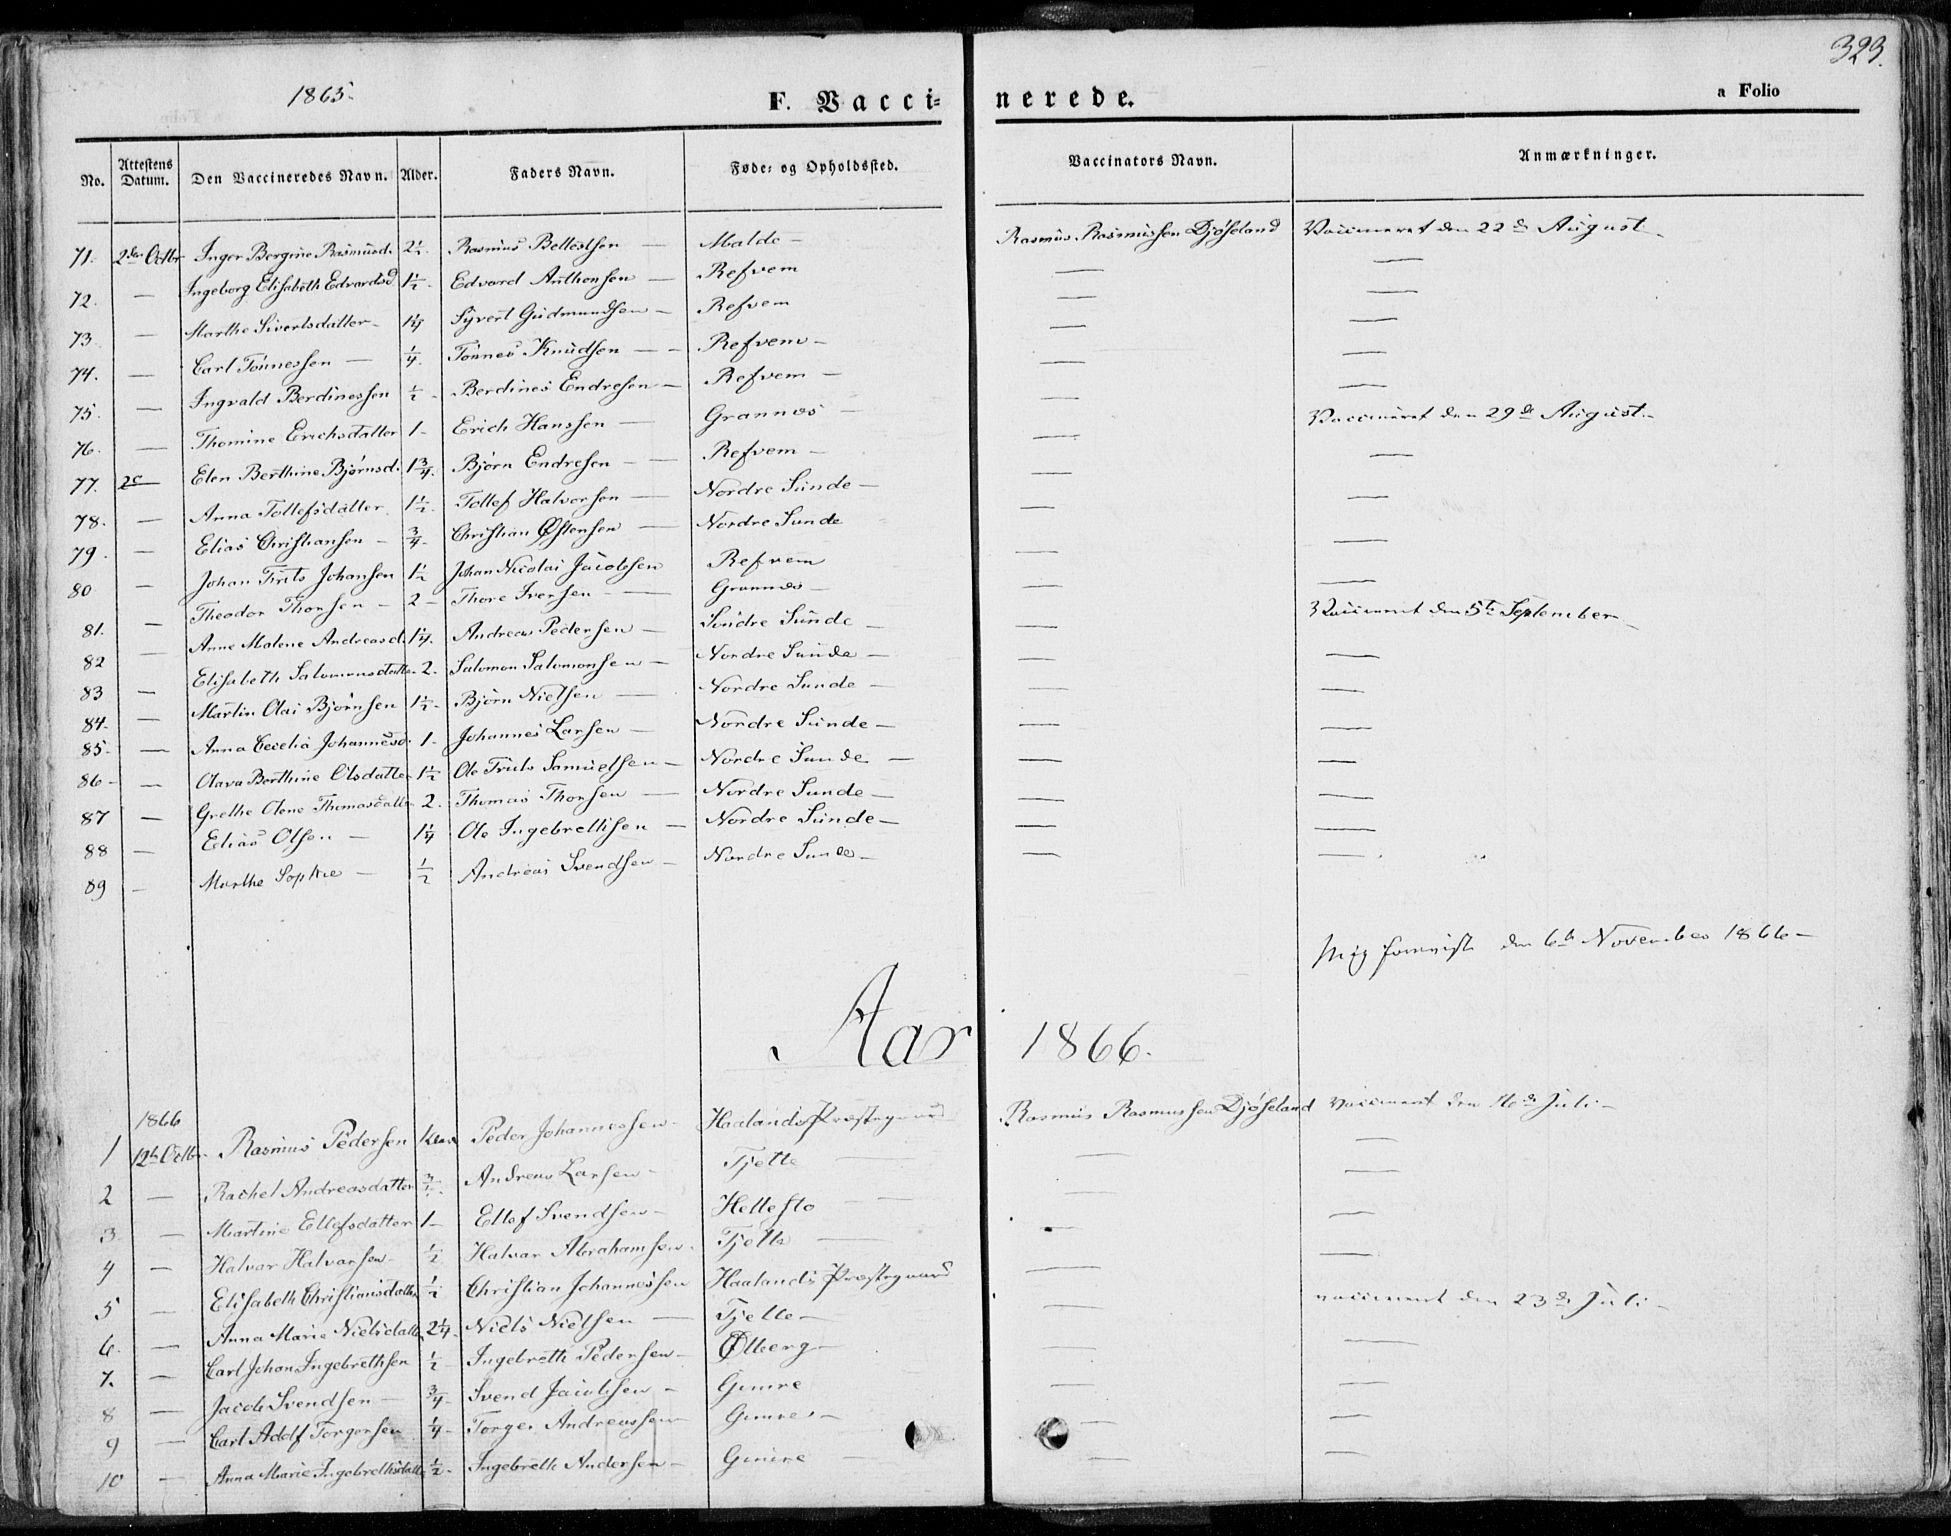 323.
1865.
F. Vaccinerede.
a Folio
No. Attestens Datum. Den Vaccineredes Navn. Alder. Faders Navn. Føde- og Opholdssted. Vaccinators Navn. Anmærkninger.
71. 2den Octbr Inger Bergine Rasmusd. 2½. Rasmus Bellestsen — Malde — Rasmus Rasmussen Djøseland Vaccineret den 22de August —
72. — Ingeborg Elisabeth Edvardsd 1½. Edvard Anthonsen — Refvem — —
73. — Marthe Sivertsdatter — 1¼ Syvert Gudmundsen — Refvem — —
74. — Carl Tönnessen — ¼. Tönnes Knudsen — — Refvem — — —
75. — Ingvald Berdinessen ½ - Berdines Endresen — Refvem — — —
76. — Thomine Erichsdatter 1 - Erich Hanssen — Grannes — — Vaccineret den 29de August —
77. 2c Elen Berthine Bjørnsd. 1¾. Bjørn Endresen — Refvem — — —
78. — Anna Tollefsdatter. 1½. Tollef Halvorsen — Nordre Sunde — — —
79. — Elias Christiansen — ¾ - Christian Østensen — Nordre Sunde — —
80 — Johan Frits Johansen 1½ Johan Nicolai Jacobsen Refvem — —
81. — Theodor Thorsen — 2 — Thore Iversen — Grannes — — —
82 — Anne Malene Andreasd. 1¼. Andreas Pedersen — Søndre Sunde — — Vaccineret den 5te September —
83 — Elisabeth Salomonsdatter 2. Salomon Salomonsen — Nordre Sunde — — —
84. — Martin Olai Bjørnsen 1½ - Bjørn Nielsen — Nordre Sunde — — —
85. — Anna Cecelia Johannesd. 1 - Johannes Larsen — Nordre Sunde — — —
86 — — Olava Berthine Olsdatter 1½ Ole Truls Samuelsen — Nordre Sunde — — —
87 — Grethe Olene Thomasdatter 2. Thomas Thorsen — Nordre Sunde — — —
88 — Elias Olsen — 1¼ Ole Ingebrettsen — Nordre Sunde — — —
89 — Marthe Sophie — ½ Andreas Svendsen — Nordre Sunde — — —
den 6te November 1866 —
Aar 1866.
1866
1 12te Octbr. Rasmus Pedersen Peder Johannessen — Haalands Præstegaard Rasmus Rasmussen Djøseland vaccineret den 16de Juli —
2 — Rachel Andreasdatter Andreas Larsen — Tjelte — —
3 — Martine Ellefsdatter 1 — Ellef Svendsen — Hellesto — — —
4 — Halvor Halvorsen ½ Halvor Abrahamsen — Tjelte — — —
5 — Elisabeth Christiansdatter ½ Christian Johannessen Haalands Præstegaard — —
6. — Anna Marie Nielsdatter 2¼. Niels Nielsen — Tjelte — — vaccineret den 23de Juli —
7. — Carl Johan Ingebrethsen ½ Ingebreth Pedersen — Ølberg — —
8 — Jacob Svendsen — ¾ Svend Jacobsen — Gimre — —
9 — Carl Adolf Torgersen ¼ - Torger Andreassen Gimre — — —
10 — Anna Marie Ingebrethsdatter ½ - Ingebreth Andersen — Gimre — — —